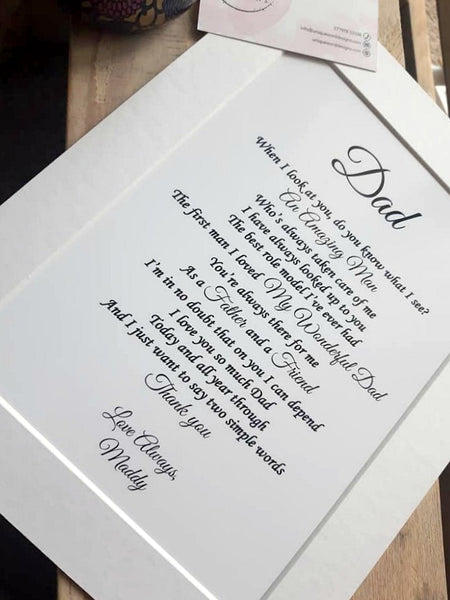 Dad
When I look at you, do you know what I see?
An Amazing Man
Who's always taken care of me
I have always looked up to you
The best role model I've ever had
The first man I loved My Wonderful Dad
You're always there for me
As a Father and a Friend
I'm in no doubt that on you I can depend
I love you so much Dad
Today and all year through
And I just want to say two simple words
Thank you
Love Always,
Maddy